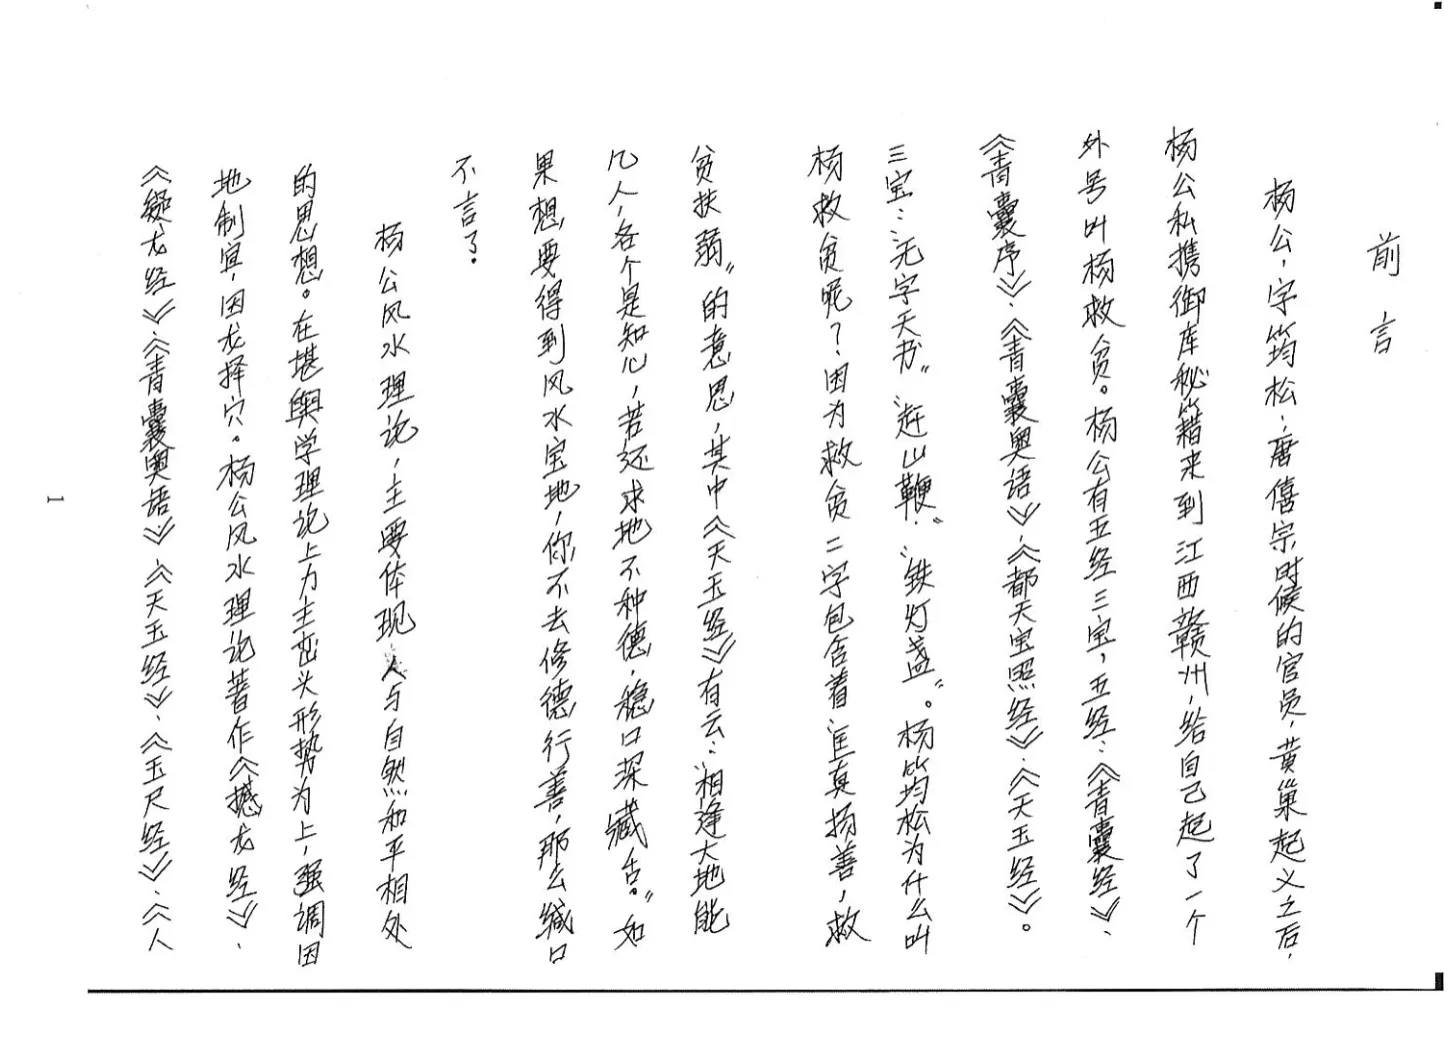 前言
杨公，字筠松，唐僖宗时候的官员，黄巢起义之后，
杨公私携御库秘籍来到江西赣州，给自己起了一个
外号叫杨救贫。杨公有五经三宝，五经：《青囊经》、
《青囊序》、《青囊奥语》、《都天宝照经》、《天玉经》。
三宝：“无字天书”“赶山鞭”“铁灯盏”。杨筠松为什么叫
杨救贫呢？因为救贫二字包含着“匡真扬善，救
贫扶弱”的意思，其中《天玉经》有云：“相逢大地能
几人，各个是知心，若还求地不种德，稳口深藏舌。”如
果想要得到风水宝地，你不去修德行善，那么缄口
不言了。
杨公风水理论，主要体现人与自然和平相处
的思想。在堪舆学理论上力主峦头形势为上，强调因
地制宜，因龙择穴。杨公风水理论著作《撼龙经》、
《疑龙经》、《青囊奥语》、《天玉经》、《玉尺经》、《人
1